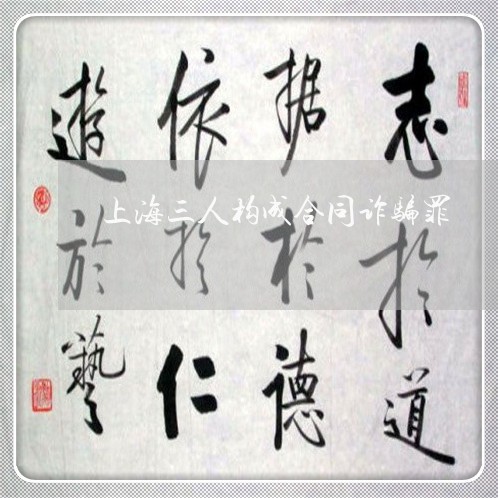 志於道
据於德
依於仁
遊於藝
上海三人构成合同诈骗罪